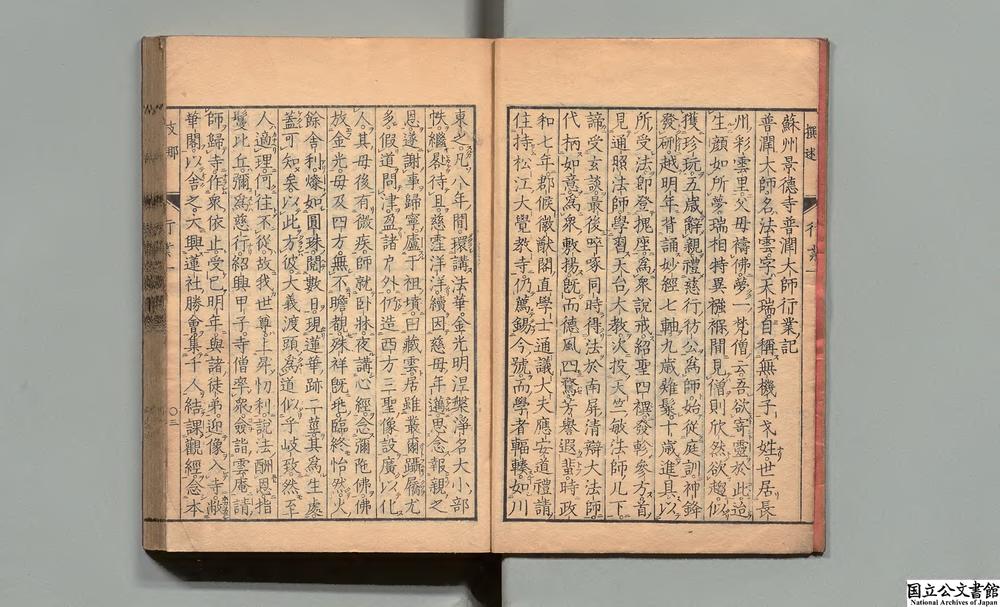 撰述
行業一
蘇州景德寺普潤大師行業記
普潤大師名法雲字天瑞自稱無機子戈姓世居長
州彩雲里父母禱佛夢一梵僧云吾欲寄靈於此迨
生顏如所夢瑞相特異襁褓間見僧則欣然欲趨似
獲珍玩五歲辭親禮慈行彷公爲師始從庭訓神鋒
發硎越明年背誦妙經七軸九歲薙髮十歲進具以
所受法即登猊座爲衆說戒紹聖四禩發軫參方首
見通照法師學習天台大教次投天竺敏法師几下
諦受玄談最後啐啄同時得法於南屏清辯大法師
代柄如意爲衆敷揚旣而德風四騖芳譽遐蜚時政
和七年郡候徽猷閣直學士通議大夫應安道禮請
住持松江大覺教寺仍薦錫今號而學者輻輳如川
東之凡八年間環講法華金光明涅槃淨名大小部
帙繼晷待旦慈霔洋洋續因慈母年邁思念報親之
恩遂謝事歸寧廬于祖墳曰藏雲居雖叢爾躡屩尤
多假道問津盈諸戶外仍造西方三聖像設廣以化
人其母後有微疾師就卧牀夜講心經念彌陀佛佛
放金光母及四方無不瞻覩殊祥旣兆臨終怡然火
餘舍利燦如圓珠閱數日現蓮華跡二莖其爲生處
蓋可知矣以此方彼大義渡頭爲道似乎歧致然至
人適理何往不從故我世尊上昇忉利說法酬恩指
鬘比丘彌爲慈行紹興甲子寺僧率衆僉詣雲庵請
師歸寺作衆依止受已明年與諸徒弟迎像入寺敞
華閣以舍之大興蓮社勝會集千人結課觀經念本
支那
行業一
〇三
国立公文書館
National Archives of Japan